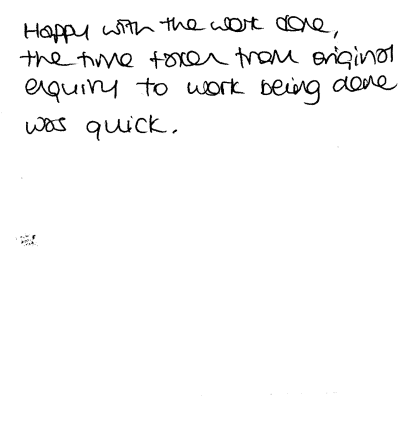 Happy with the work done,
the time taken from original
enquiry to work being done
was quick.